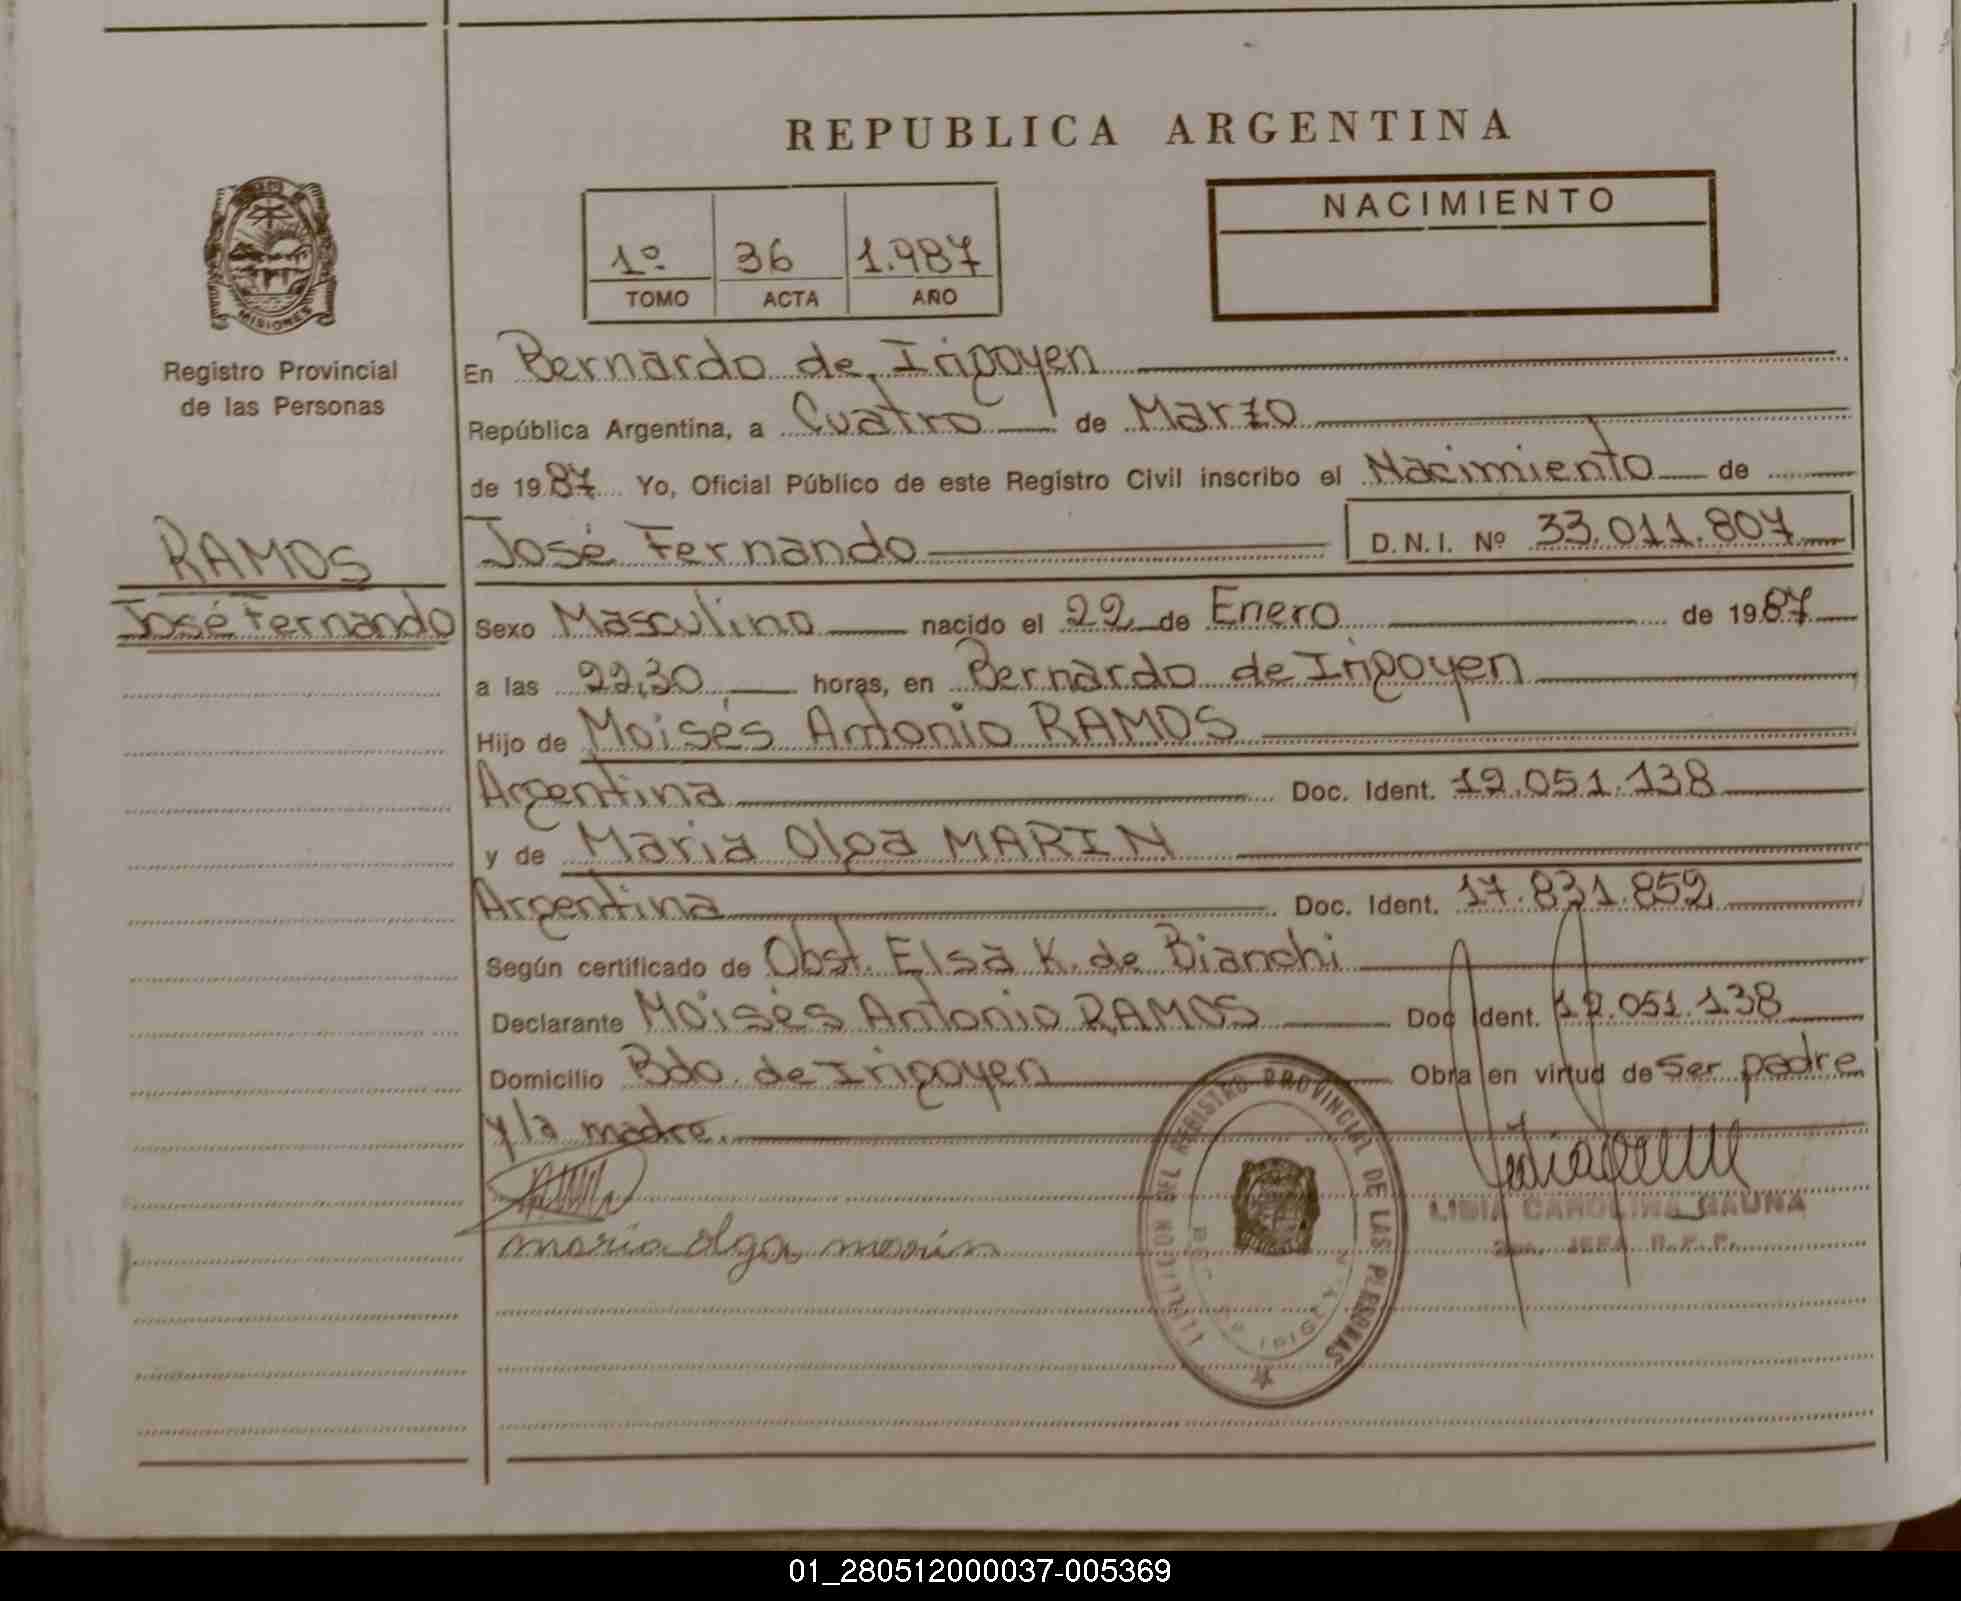 REPUBLICA ARGENTINA
NACIMIENTO
1º 36 1.987
TOMO ACTA AÑO
MISIONES
Registro Provincial
de las Personas
RAMOS
José Fernando
En Bernardo de Irigoyen
República Argentina, a Cuatro de Marzo
de 1987 Yo, Oficial Público de este Registro Civil inscribo el Nacimiento de
José Fernando D.N.I. Nº 33.011.807
Sexo Masculino nacido el 22 de Enero de 1987
a las 22,30 horas, en Bernardo de Irigoyen
Hijo de Moisés Antonio RAMOS
Argentina Doc. Ident. 12.051.138
y de Maria Olga MARIN
Argentina Doc. Ident. 17.831.852
Según certificado de Obst. Elsa K. de Bianchi
Declarante Moisés Antonio RAMOS Doc Ident. 12.051.138
Domicilio Bdo. de Irigoyen Obra en virtud de ser padre
y la madre.
maria olga marin
DEL REGISTRO PROVINCIAL DE LAS PERSONAS
LIDIA CAROLINA GAUNA
JEFA R.P.P.
01_280512000037-005369